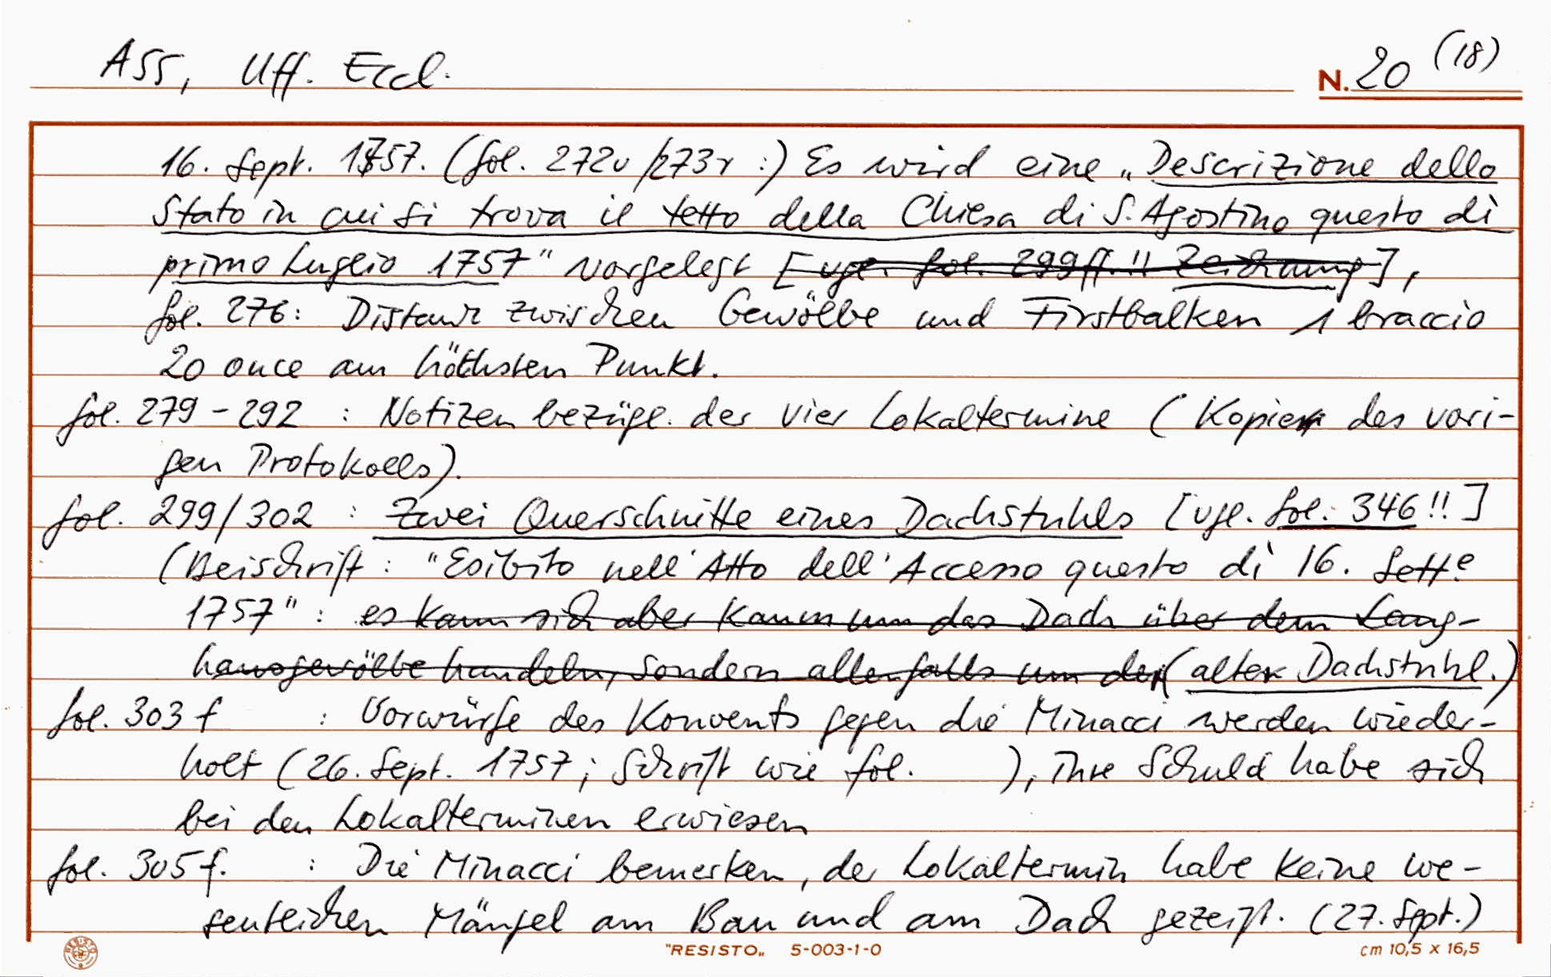 ASS, Uff. Eccl.
N. 20 (18)
16. Sept. 1757. (fol. 272v/273r:) Es wird eine „Descrizione dello
Stato in cui si trova il tetto della Chiesa di S. Agostino questo dì
primo Luglio 1757" vorgelegt [vgl. fol. 299ff.!! Zeichnung],
fol. 276: Distanz zwischen Gewölbe und Firstbalken 1 braccio
20 once am höchsten Punkt.
fol. 279-292 : Notizen bezügl. der vier Lokaltermine (Kopien des vori-
gen Protokolls).
fol. 299/302 : Zwei Querschnitte eines Dachstuhls [vgl. fol. 346!!]
(Beischrift: "Esibito nell'Atto dell'Accesso questo dì 16. Sette
1757": es kann sich aber kaum um das Dach über dem Lang-
hausgewölbe handeln, sondern allenfalls um den (alten Dachstuhl.)
fol. 303 f : Vorwürfe des Konvents gegen die Minacci werden wieder-
holt (26. Sept. 1757; Schrift wie fol. ), ihre Schuld habe sich
bei den Lokalterminen erwiesen
fol. 305 f. : Die Minacci bemerken, der Lokaltermin habe keine we-
sentlichen Mängel am Bau und am Dach gezeigt. (27. Sept.)
"RESISTO„ 5-003-1-0
cm 10,5 x 16,5